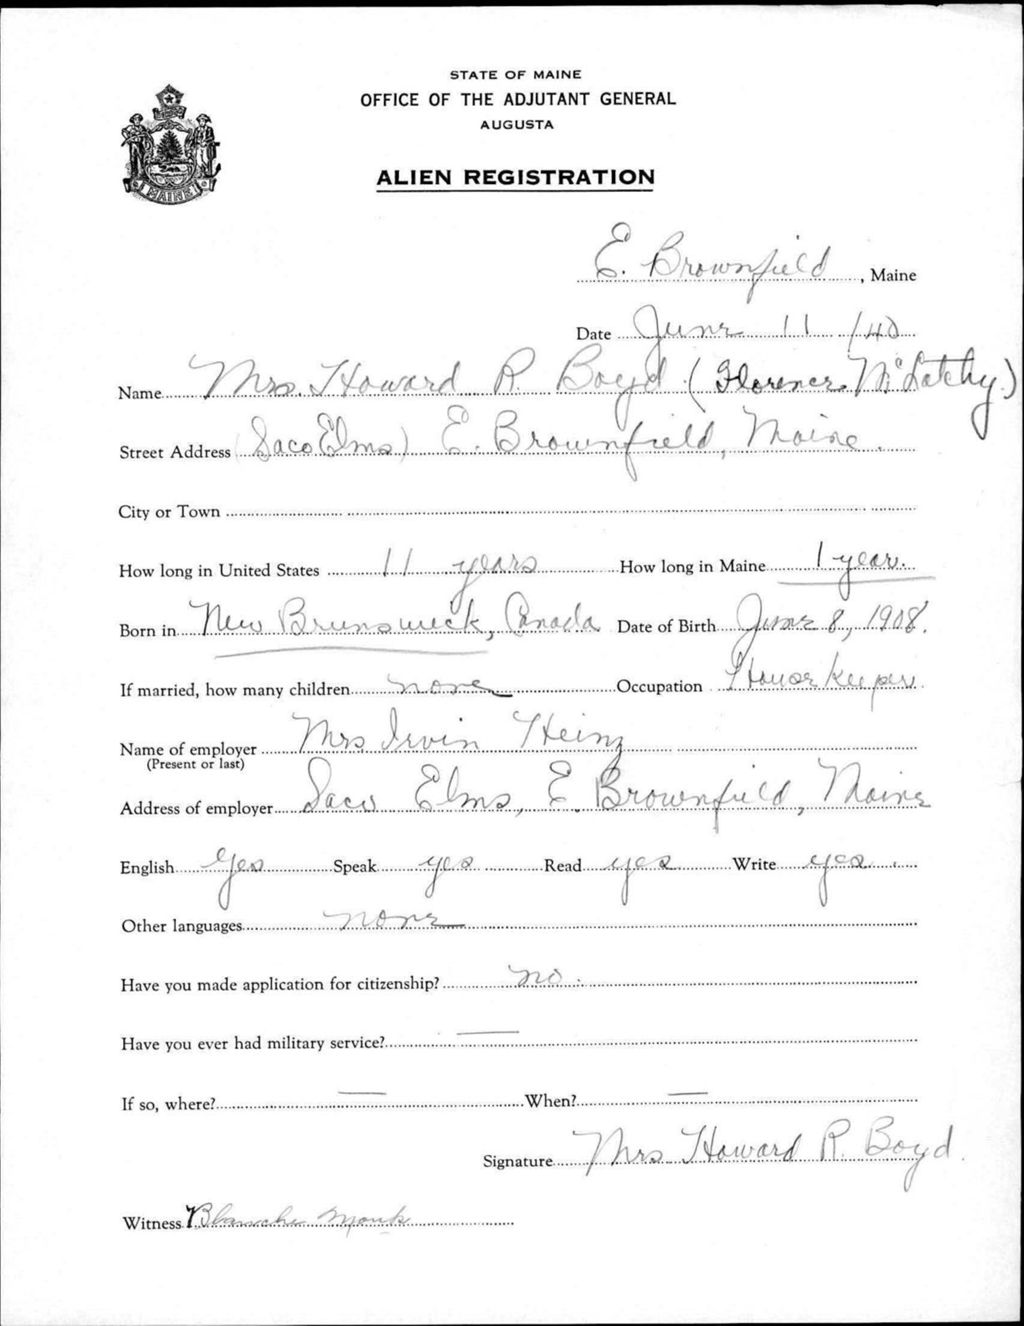 STATE OF MAINE
OFFICE OF THE ADJUTANT GENERAL
AUGUSTA
ALIEN REGISTRATION
MAINE
E. Brownfield, Maine
Date June 11 /40
Name Mrs. Howard R. Boyd (Florence McLatchy.)
Street Address (Saco Elms) E. Brownfield, Maine.
City or Town
How long in United States 11 years How long in Maine 1 year.
Born in New Brunswick, Canada Date of Birth June 8, 1908.
If married, how many children none Occupation House keeper
Name of employer Mrs Irvin Heinz
(Present or last)
Address of employer Saco Elms, E. Brownfield, Maine
English Yes Speak yes Read yes Write yes
Other languages none
Have you made application for citizenship? no
Have you ever had military service? —
If so, where? — When? —
Signature Mrs Howard R. Boyd.
Witness Blanche Monk